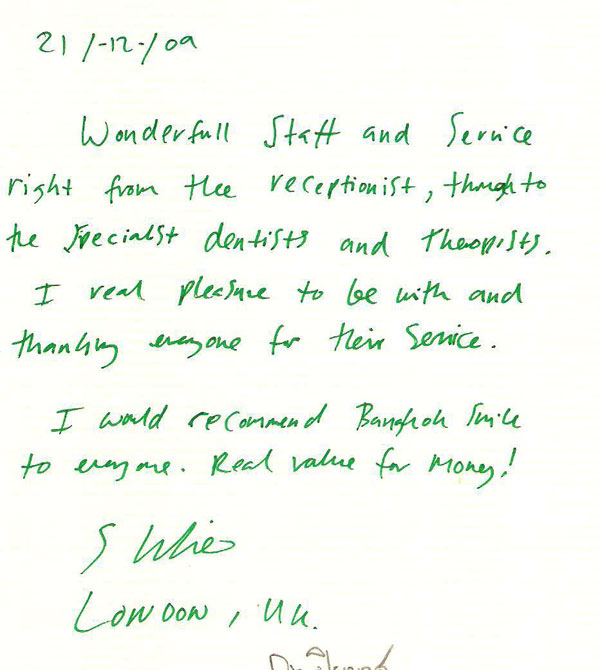 21/-12-/09
Wonderfull Staff and Service
right from the receptionist, though to
the specialst dentists and therapists.
I real pleasure to be with and
thanking everyone for their Service.
I would recommend Bangkok Smile
to everyone. Real value for money!
S
LONDON, UK.
Dr.